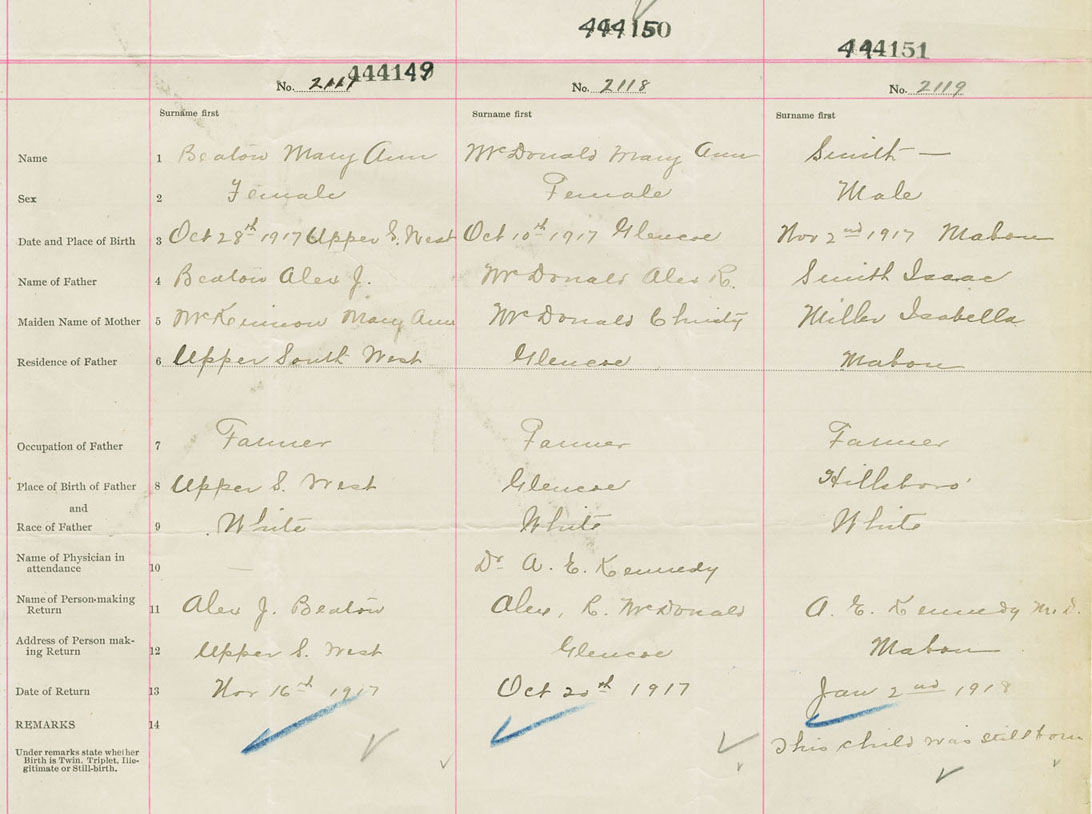 444150
444151
444149
No. 2117 No. 2118 No. 2119
Surname first Surname first Surname first
Name 1 Beaton Mary Ann McDonald Mary Ann Smith —
Sex 2 Female Female Male
Date and Place of Birth 3 Oct 28th 1917 Upper S. West Oct 10th 1917 Glencoe Nov 2nd 1917 Mabou
Name of Father 4 Beaton Alex J. McDonald Alex R. Smith Isaac
Maiden Name of Mother 5 McKinnon Mary Ann McDonald Christy Miller Isabella
Residence of Father 6 Upper South West Glencoe Mabou
Occupation of Father 7 Farmer Farmer Farmer
Place of Birth of Father 8 Upper S. West Glencoe Hillsboro
and
Race of Father 9 White White White
Name of Physician in
attendance 10 — Dr A. E. Kennedy
Name of Person making
Return 11 Alex J. Beaton Alex. R. McDonald A. E. Kennedy M.D.
Address of Person mak-
ing Return 12 Upper S. West Glencoe Mabou
Date of Return 13 Nov 16th 1917 Oct 20th 1917 Jan 2nd 1918
REMARKS 14 This child was stillborn
Under remarks state whether
Birth is Twin, Triplet, Ille-
gitimate or Still-birth.